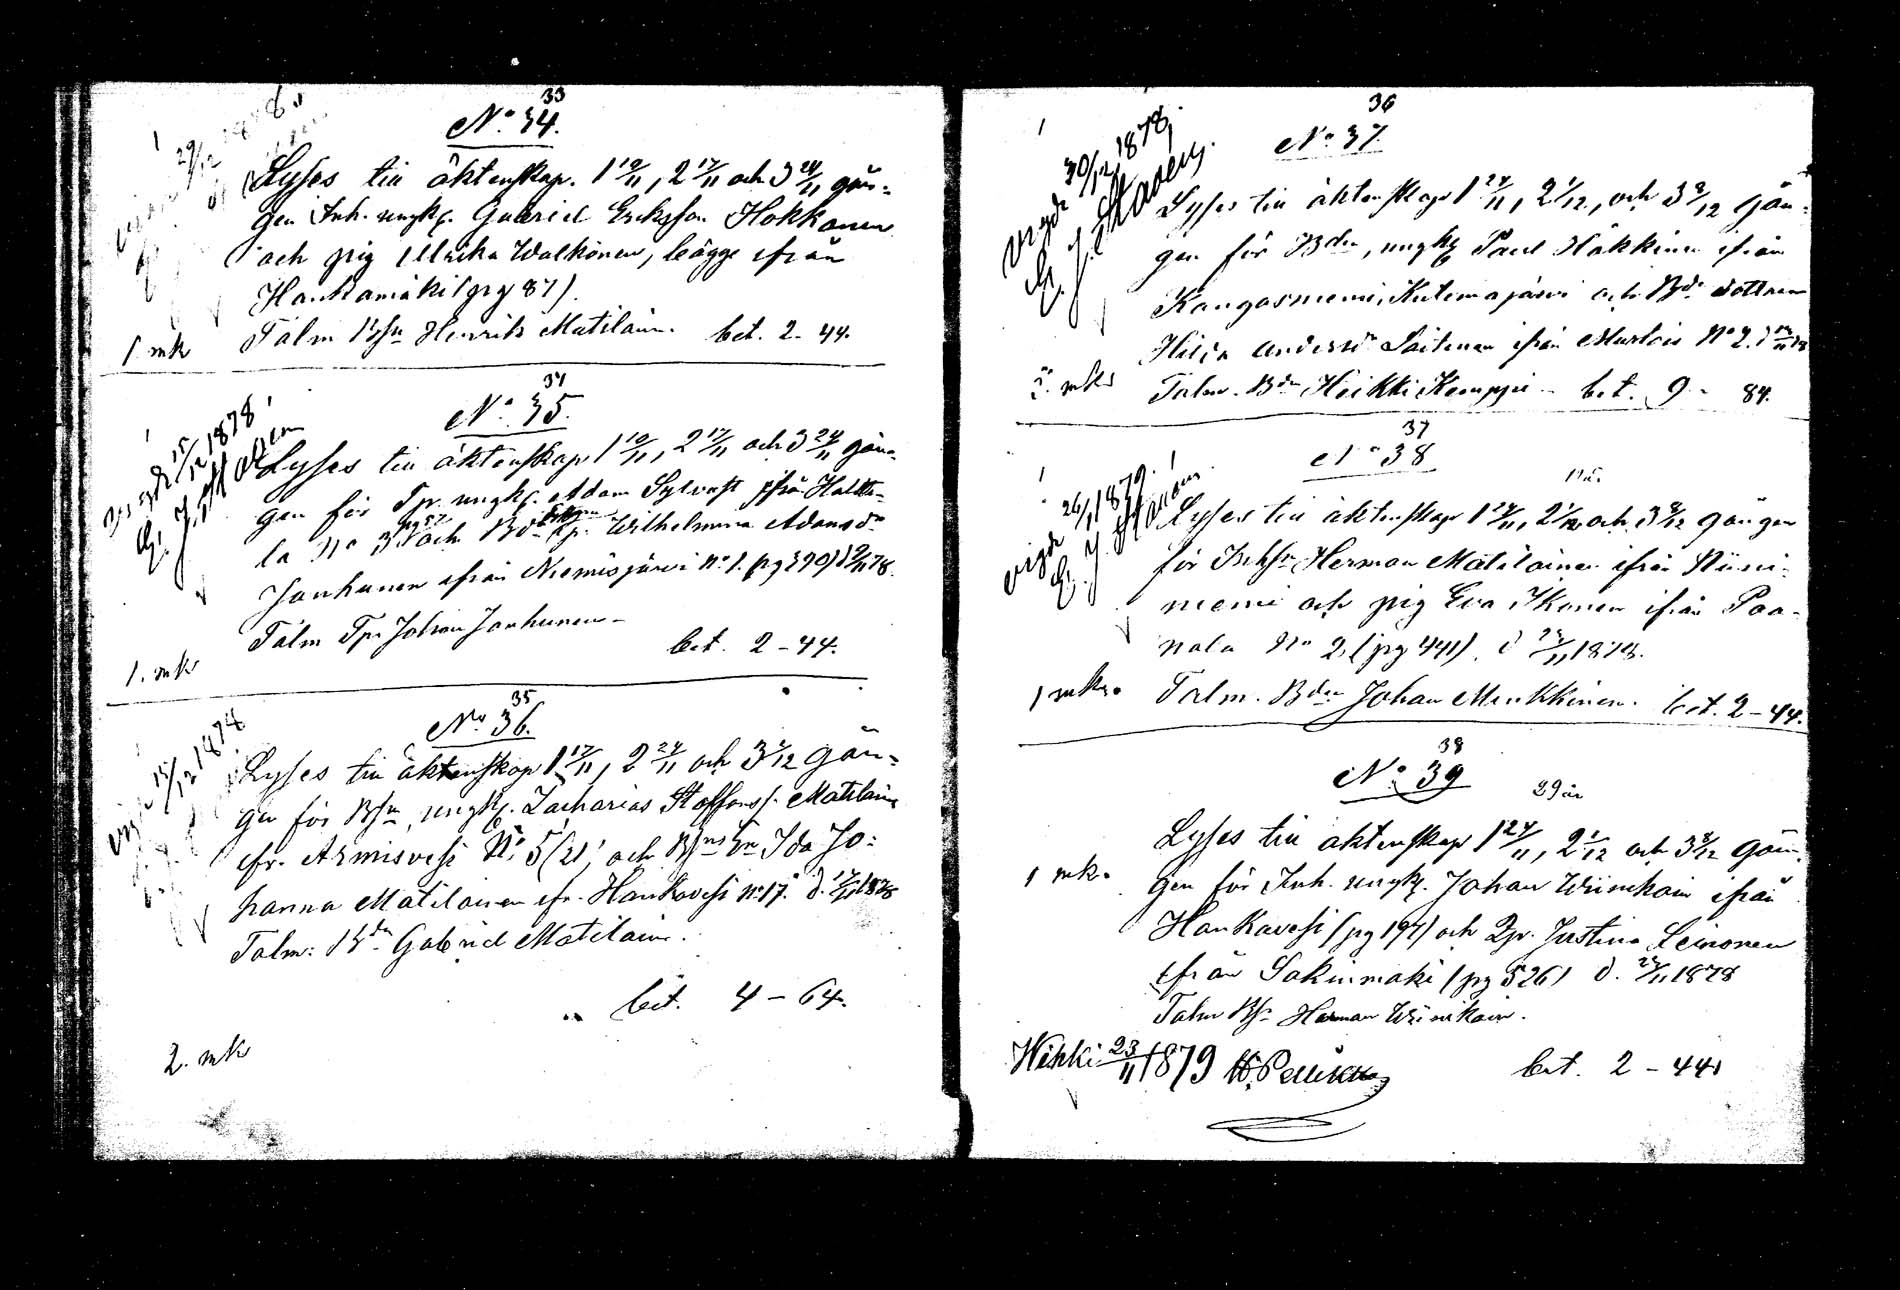 33
No 34.
29/12 1878
Lyses till äktenskap. 1 10/11, 2 17/11 och 3 24/11 gån-
gen Inh. ungk. Gabriel Eriksson Hokkanen
och pig Ulrika Walkonen, bägge ifrån
Hankamäki (pg 87).
1 mk
Talm Henrik Matilain. bet. 2-44.
34
No 35.
Vigde 15/12 1878
Lyses till äktenskap 1 10/11, 2 17/11 och 3 24/11 gån-
gen för Tp. ungk. Adam Sylvast ifrån Haltto-
la No 3 och Wilhelmina Adamsdr
Janhunen ifrån Niemisjärvi No 1. (pg 390)
Talm Tp. Johan Janhunen
bet. 2-44.
1. mk
35
No 36.
Vigde 15/12 1878
Lyses till äktenskap 1 17/11, 2 24/11 och 3 1/12 gån-
gen för ungk. Zacharias Staffanss. Matilaine
fr. Armisvesi No 5 (21) och Ida Jo-
hanna Matilainen fr. Hankavesi No 17. d. 17/11 1878
Talm: Gabriel Matilain.
bet. 4-64.
2. mk
36
No 37.
Vigde 30/12 1878
Lyses till äktenskap 1 24/11, 2 1/12, och 3 8/12 gån-
gen för Bdn, ungk Paul Häkkinen ifrån
Kangasniemi, Kutemajärvi och Bde dottren
Hilda Andersdr Laitinen ifrån Murtois No 2.
mk
Talm. Bdn Heikki Kemppi bet. 9 - 84.
37
No 38
vigde 26/1 1879
Lyses till äktenskap 1 24/11, 2 1/12 och 3 8/12 gången
för Herman Matilainen ifrån Niini-
niemi och pig Eva Ikonen ifrån Paa-
nala No 2, (pg 441). d 1878.
1 mk
Talm. Bdn Johan Minkkinen. bet. 2-44.
38
No 39
29 år
Lyses till äktenskap 1 24/11, 2 1/12 och 3 8/12 gån-
1 mk.
gen för Inh. ungk. Johan Wiinikain ifrån
Hankavesi (pg 194) och Justina Leinonen
ifrån Sakinmäki (pg 526) d. 1878
Talm Herman Wiinikain.
Wihki 23/11 1879
bet. 2-44